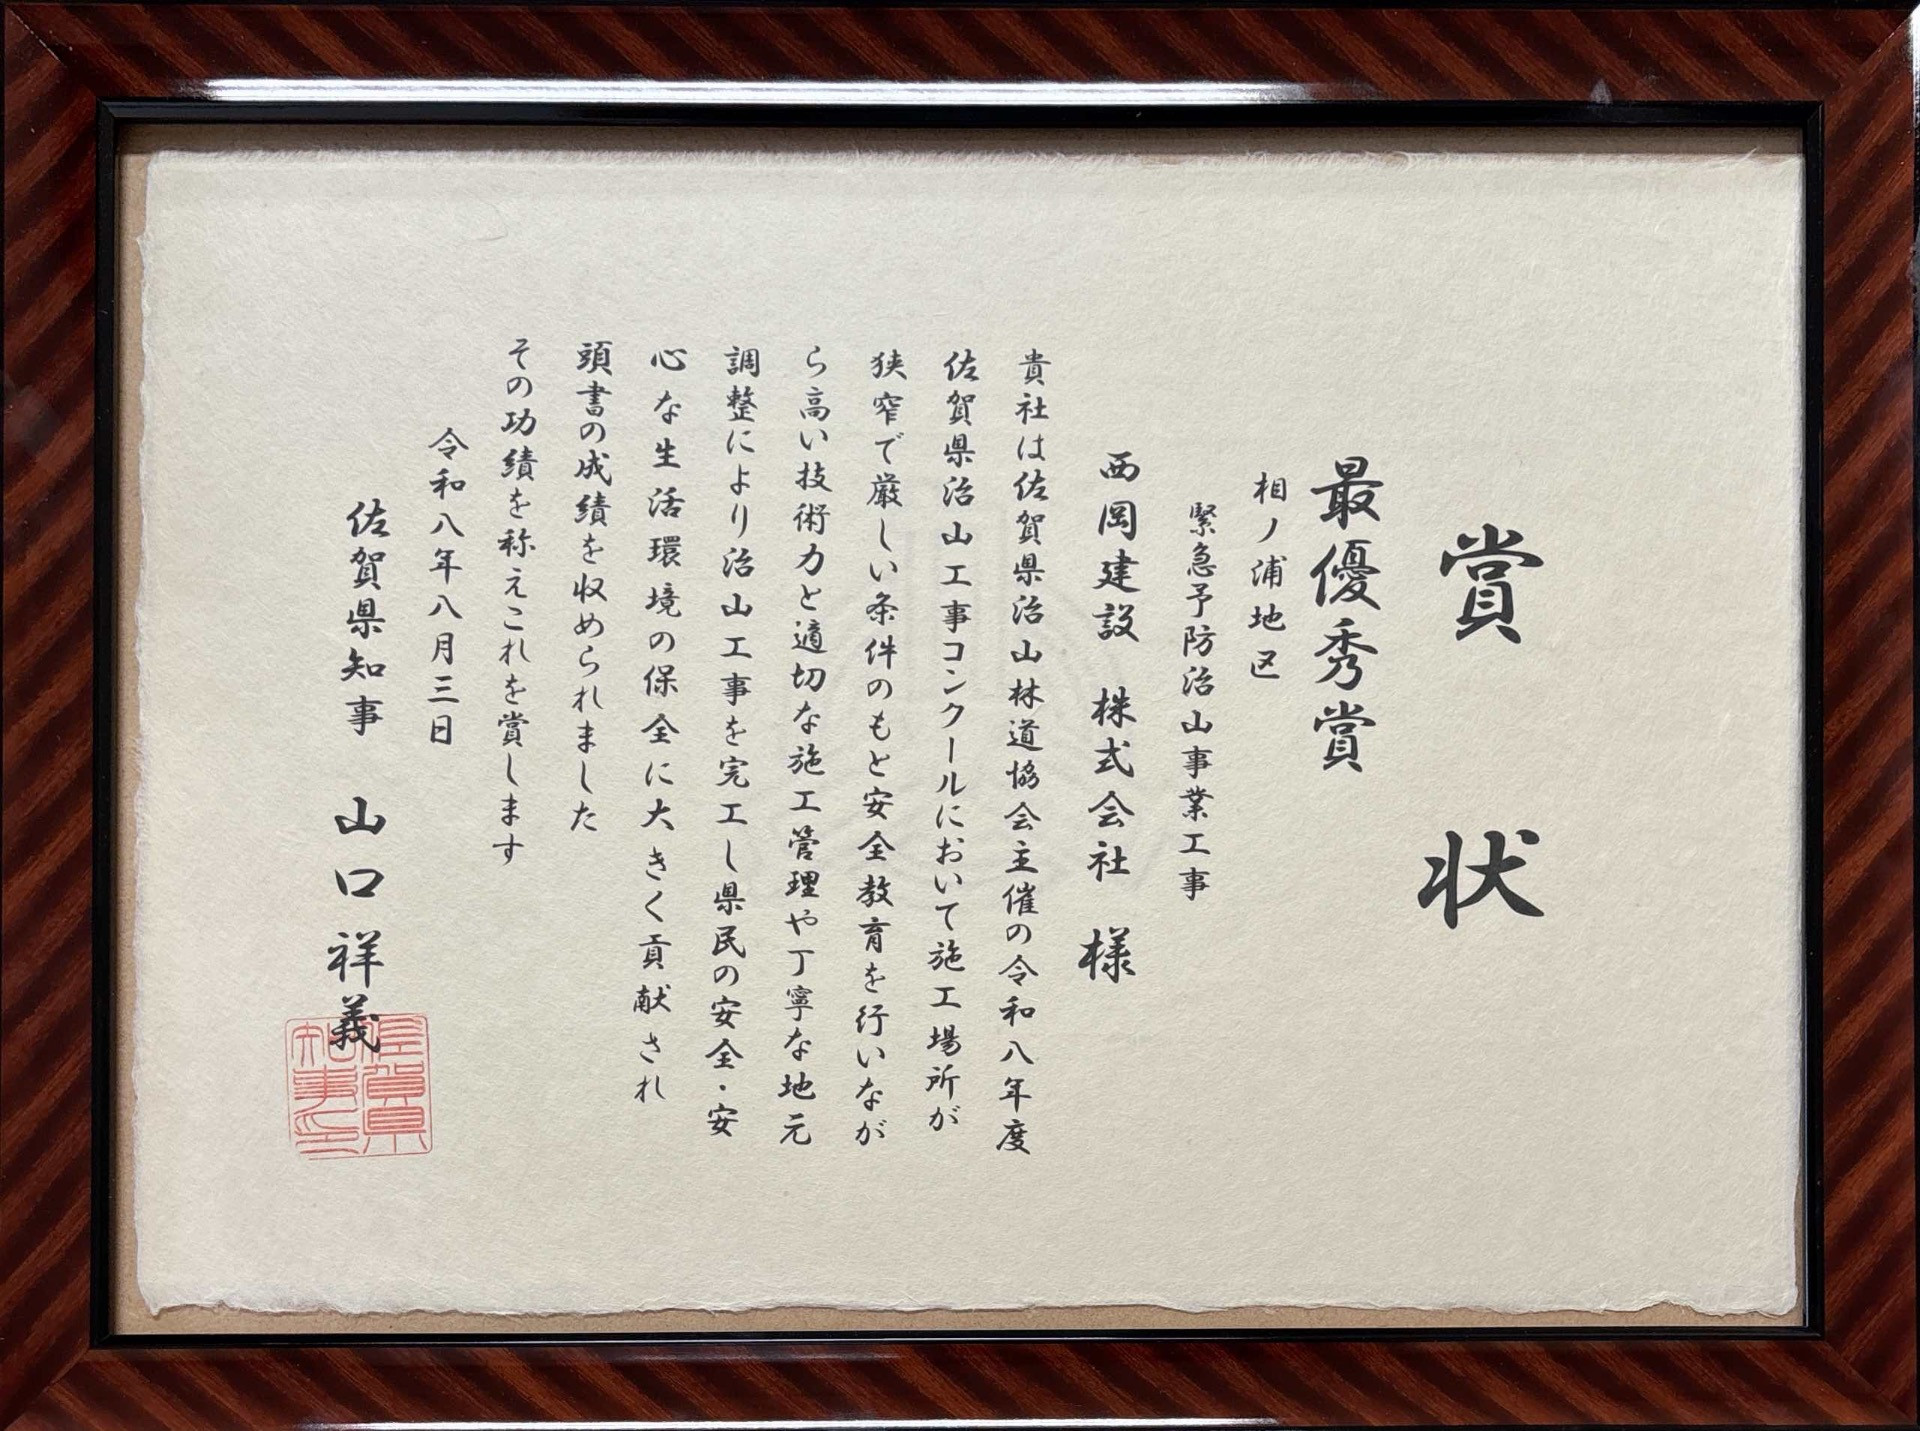 賞状
最優秀賞
相ノ浦地区
緊急予防治山事業工事
西岡建設 株式会社 様
貴社は佐賀県治山林道協会主催の令和八年度
佐賀県治山工事コンクールにおいて施工場所が
狭窄で厳しい条件のもと安全教育を行いなが
ら高い技術力と適切な施工管理や丁寧な地元
調整により治山工事を完工し県民の安全・安
心な生活環境の保全に大きく貢献され
頭書の成績を収められました
その功績を称えこれを賞します
令和八年八月三日
佐賀県知事 山口祥義
佐賀県知事之印